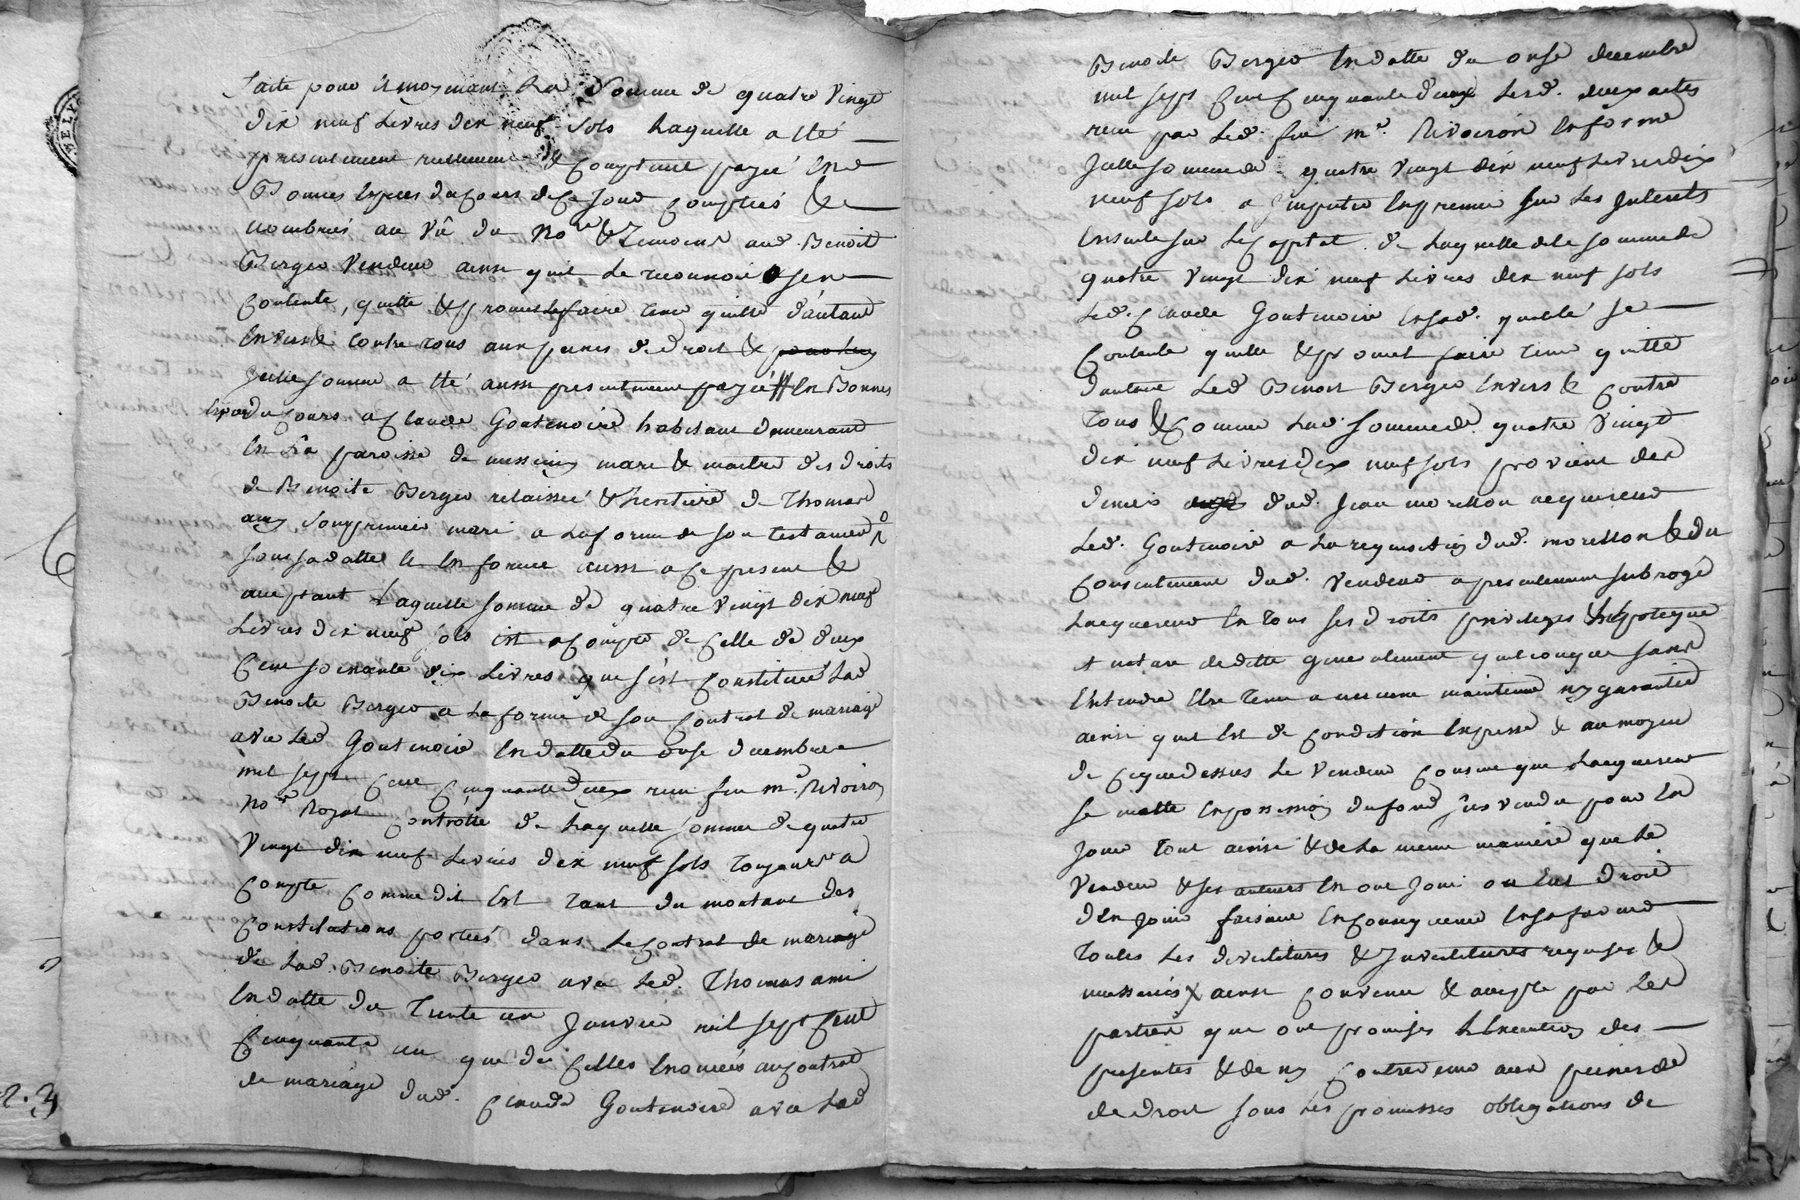 faite pour et moyenant La Somme de quatre vingt
dix neuf Livres dix neuf Sols Laquelle a eté
presentement reellement & comptant payée en
Bonnes especes du cours de ce jour comptées &
nombrées au vû du No.re & Temoins aud. Benoit
Berger Vendeur ainsi quil Le reconnoit s'en
contente, quitte & promet faire tenir quitte d'autant
envers & contre tous aux peines de Droit &
Jcelle Somme a eté aussi presentement payée en Bonnes
especes du cours a Claude Goutenoire habitant demeurant
en La paroisse de mari & maitre des droits
de Benoite Berger relaissée & heritiere de Thomas
amy Son premier mari a La forme de Son testament
Sous Sa datte en forme aussi a ce present &
acceptant Laquelle Somme de quatre vingt dix neuf
Livres dix neuf Sols est acompte de Celle de deux
Cent soixante dix Livres que S'est constituée Lad.
Benoite Berger a La forme de Son Contrat de mariage
avec Led. Goutenoire en datte du onse decembre
mil sept cent cinquante deux recu feu m.e Rivoiron
No.re Royal controllé de Laquelle Somme de quatre
Vingt dix neuf Livres dix neuf Sols toujours a
compte comme dit est tant du montant des
Constitutions portées dans Le contrat de mariage
de Lad. Benoite Berger avec Led. Thomas ami
en datte du trente un Janvier mil sept cent
Cinquante un que de Celles enoncées au contrat
de mariage dud. Claude Goutenoire avec Lad.
Benoite Berger en datte du onse decembre
mil sept Cent cinquante deux Lesd. deux actes
recu par Led. feu m.e Rivoiron en forme
Jcelle Somme de quatre vingt dix neuf Livres dix
neuf Sols a jmputer en premier Sur Les Jnterets
ensuite sur Le Capital de Laquelle dite Somme de
quatre vingt dix neuf Livres dix neuf Sols
Led. Claude Goutenoire en Sad. qualité Se
contente quitte & promet faire tenir quitte
d'autant Led. Benoit Berger envers & contre
tous & comme Lad. Somme de quatre vingt
dix neuf Livres dix neuf Sols provient des
deniers dud. Jean morellon acquereur
Led. Goutenoire a La requisition dud. morellon & du
consentement dud. vendeur a presentement subrogé
Lacquereur en tous Ses droits privileges & hipoteque
et nature de dette generalement quelconque sans
entendre etre tenu a aucune maintenue ny garantie
ainsi quil est de condition expresse & au moyen
de ce que dessus Le vendeur consent que Lacquereur
Se mette en possession du fond Sus vendu pour en
Jouir tout ainsi & de La meme maniere que Le
Vendeur & Ses auteurs en ont Joui ou eut droit
d'en Jouir faisant en consequence en Sa faveur
toutes Les devestitures & Jnvestitures requises &
necessaires ainsi convenu & accepté par Les
parties qui ont promises L'execution des
presentes & de ny contrevenir aux peines de
de droit sous Les promesses obligations de